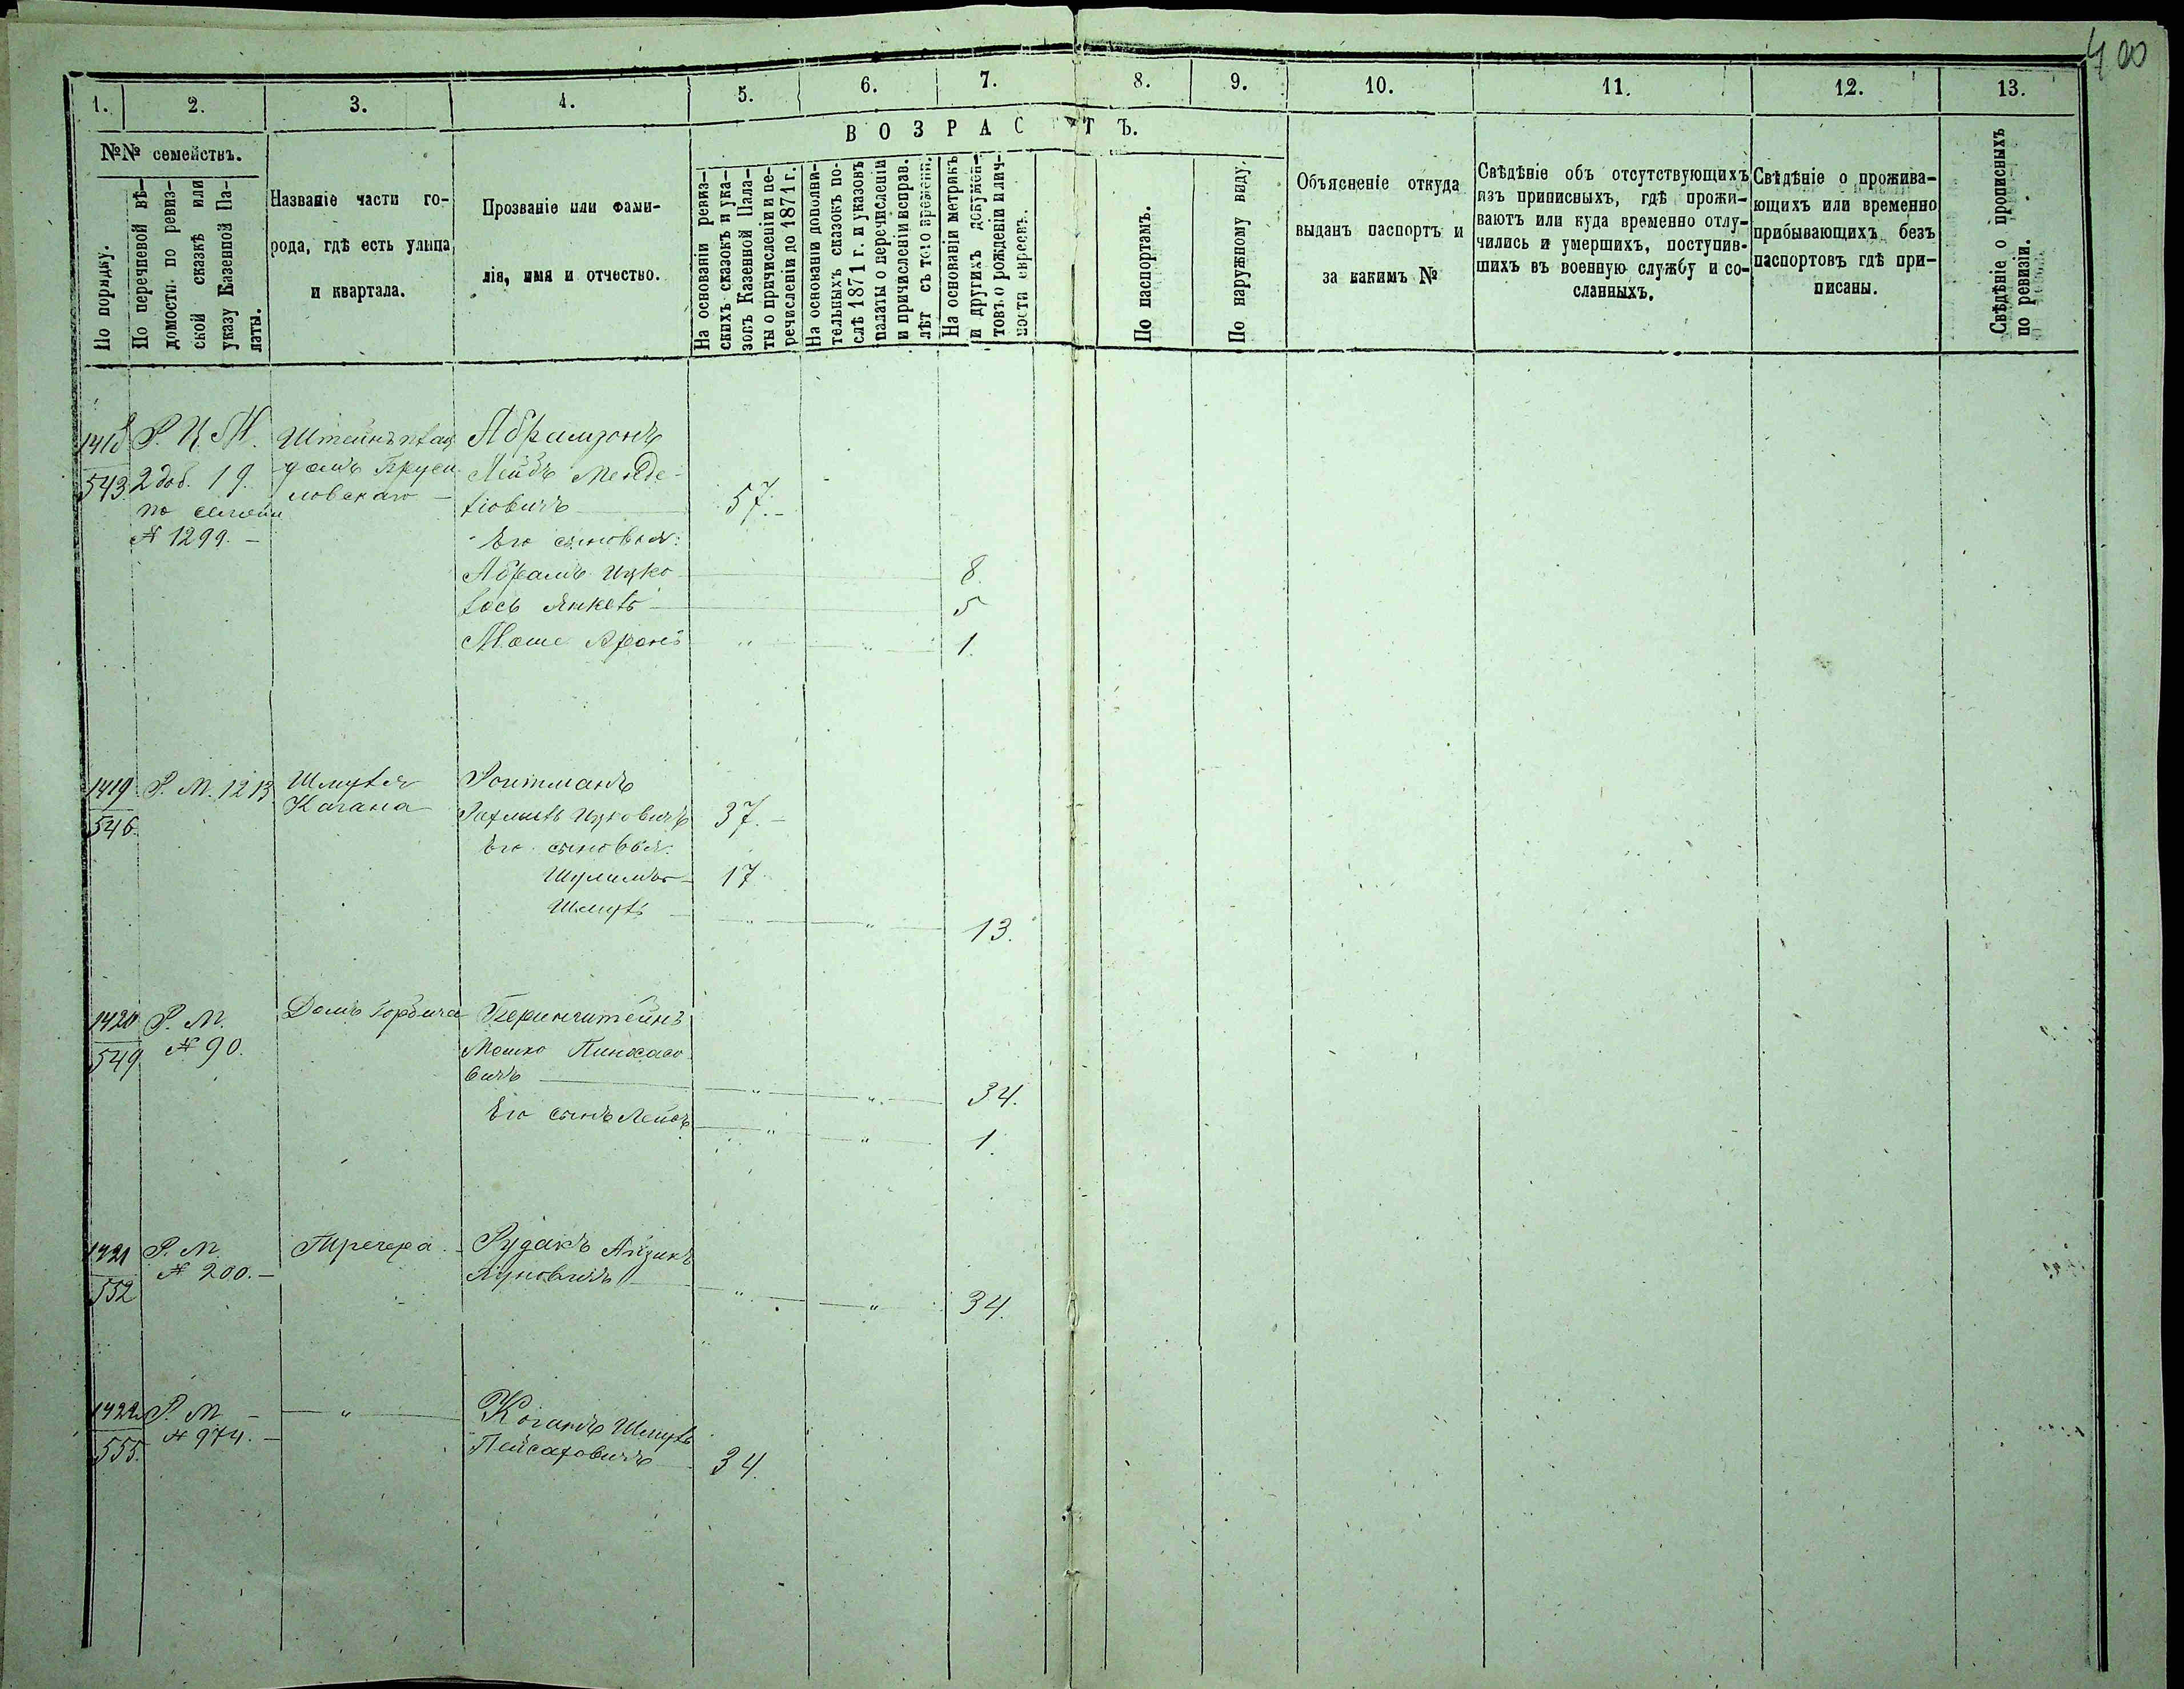 400
1. 2. 3. 4. 5. 6. 7. 8. 9. 10. 11. 12. 13.
ВОЗРАСТЪ.
№№ семействъ.
По порядку.
По перечневой вѣ-
домости по ревиз-
ской сказкѣ или
указу Казенной Па-
латы.
Названіе части го-
рода, гдѣ есть улица
и квартала.
Прозваніе или фами-
лія, имя и отчество.
На основаніи ревиз-
скихъ сказокъ и ука-
зовъ Казенной Пала-
ты о причисленіи и пе-
речисленіи до 1871 г.
На основаніи дополни-
тельныхъ сказокъ по-
слѣ 1871 г. и указовъ
палаты о перечисленіи
и причисленіи исправ.
лѣт съ того времени.
На основаніи метрикъ
и другихъ докумен-
товъ о рожденіи и лич-
ности евреевъ.
По паспортамъ.
По наружному виду.
Объясненіе откуда
выданъ паспортъ и
за какимъ №
Свѣдѣніе объ отсутствующихъ
изъ приписныхъ, гдѣ прожи-
ваютъ или куда временно отлу-
чились и умершихъ, поступив-
шихъ въ военную службу и со-
сланныхъ.
Свѣдѣніе о прожива-
ющихъ или временно
прибывающихъ безъ
паспортовъ гдѣ при-
писаны.
Свѣдѣніе о прописныхъ
по ревизіи.
1418 Р. Ц. М. Абрамзонъ
543 2 доб. 19. домъ Лейбъ Менде-
по ловскаго леовичъ 57.
№ 1299. Его сыновья:
Абрамъ Ицко 8.
Іось Янкель 5
Моше Аронъ " " 1.
1419 Р. М. 1213 Шмуля Ройтманъ
546. Кагана Рахмиль Ицковичъ 37.
Его сыновья:
Шулимъ 17
Шмуль " " 13.
1420 Р. М. Домъ Горбича Беринштейнъ
549 № 90. Мошко Пинхасо-
вичъ " " 34.
Его сынъ Лейбъ " " 1.
1421 Р. М. Рудакъ Айзикъ
552 № 200. " " 34.
1422 Р. М. " Коганъ Шмуль
555. № 974. Пейсаховичъ 34.